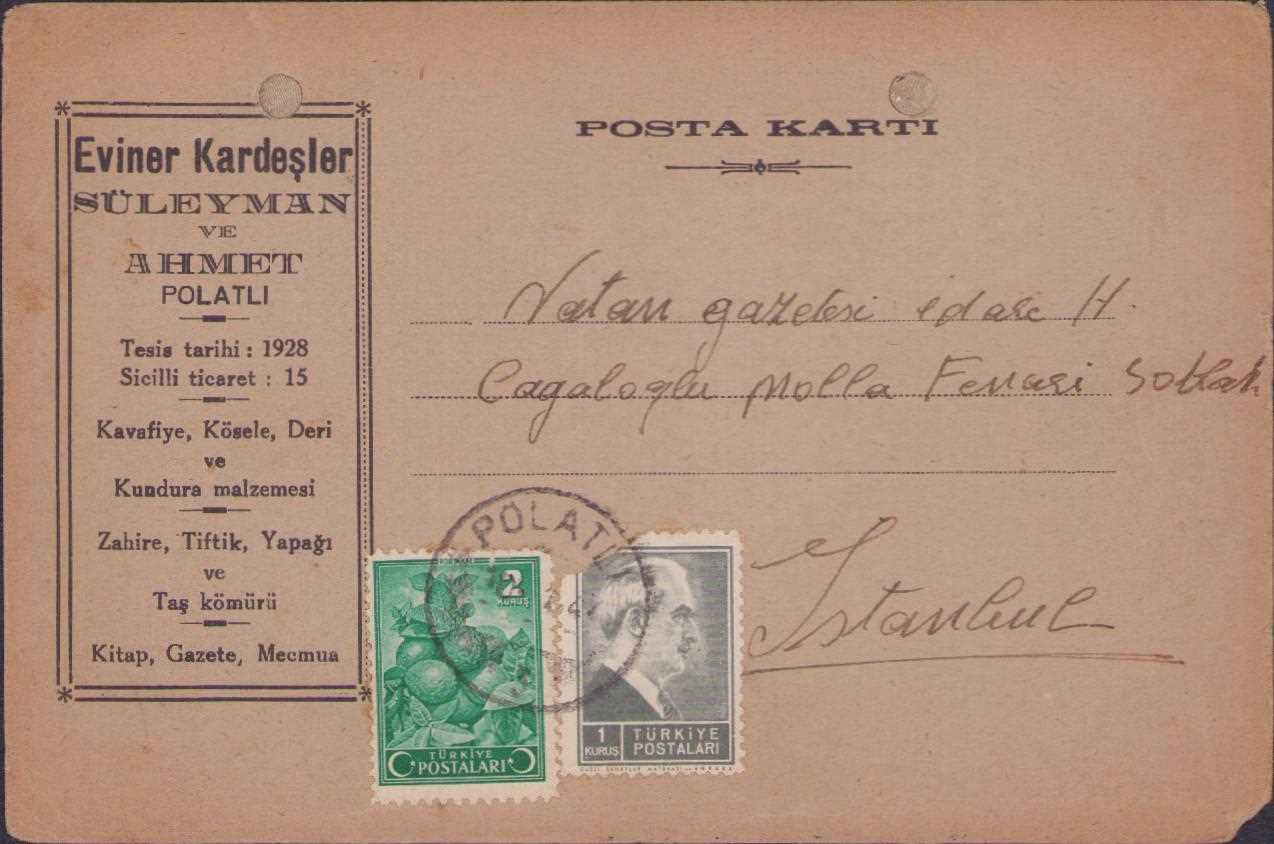 Eviner Kardeşler
SÜLEYMAN
VE
AHMET
POLATLI
Tesis tarihi : 1928
Sicilli ticaret : 15
Kavafiye, Kösele, Deri
ve
Kundura malzemesi
Zahire, Tiftik, Yapağı
ve
Taş kömürü
Kitap, Gazete, Mecmua
POSTA KARTI
Vatan gazetesi idare H.
Cagaloglu Molla Fenari Sokak
İstanbul
POLATLI
2
KURUŞ
TÜRKİYE
POSTALARI
1
KURUŞ
TÜRKİYE
POSTALARI